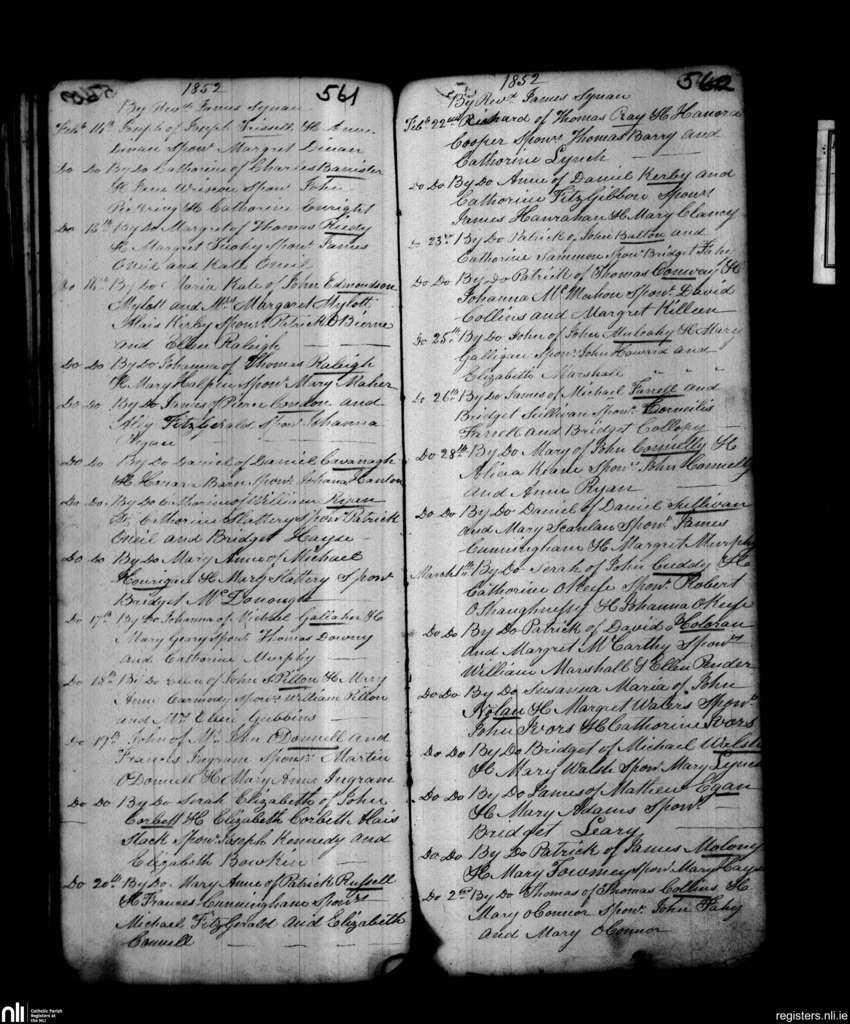 1852
561
By Revd. James Synan
Feby. 14th Joseph of Joseph & Anne
Spons. Margret
Do Do By Do Catherine of Charles Banister
& Jane Spons. John
Pickring & Catherine Enright
Do 15th By Do Margret of Thomas
& Margret Spons. James
Oneil and Kate Oneil
Do 16th By Do Maria Kate of John Edmondson
Mylott and Mrs Margaret Mylott
Alais Kirby Spons. Patrick O'Bierne
and Ellen Raleigh
Do Do By Do Johanna of Thomas Raleigh
& Mary Halpin Spons. Mary Maher
Do Do By Do James of Pierce Condon and
FitzGerald Spons. Johanna
Ryan
Do Do By Do Daniel of Daniel Cavanagh
& Honora Spons. Johana Hanlon
Do Do By Do Catherine of William
& Catherine Slattery Spons. Patrick
Oneil and Bridget Hayse
Do Do By Do Mary Anne of Michael
Hourigan & Mary Slattery Spons.
Bridget McDonough
Do 17th By Do Johanna of Michael Gallaher &
Mary Spons. Thomas Downy
and Catherine Murphy
Do 18th By Do Ellen of John S Killon & Mary
Anne Carmody Spons. William Killon
and Mrs Ellen Gubbins
Do 19th John of Mr. John O'Donnell and
Francis Ingram Spons. Martin
O'Donnell & Mary Anne Ingram
Do Do By Do Serah Elizabeth of John
Corbett & Elizabeth Corbett Alais
Hock Spons. Joseph Kennedy and
Elizabeth Bowkin
Do 20th By Do Mary Anne of Patrick Russell
& Frances Cunningham Spons.
Michael FitzGerald and Elizabeth
Connell
1852
562
By Revd. James Synan
Feby. 22nd Richard of Thomas Ray & Hanora
Cooper Spons. Thomas Barry and
Catherine Lynch
Do Do By Do Anne of Daniel Kerby and
Catherine FitzGibbon Spons.
James Hanrahan & Mary Clancy
Do 23rd By Do Patrick of John Balton and
Catherine Sammon Spons. Bridget
Do Do By Do Patrick of Thomas Conway &
Johanna McMahon Spons. David
Collins and Margret Killeen
Do 25th By Do John of John Mulcahy & Mary
Galligan Spons. John Howard and
Elizabeth Marshall
Do 26th By Do James of Michael Farrell and
Bridget Sullivan Spons. Cornilis
Farrell and Bridget Callopy
Do 28th By Do Mary of John Connelly &
Alicia Keane Spons. John Connelly
and Anne Ryan
Do Do By Do Daniel of Daniel Sullivan
and Mary Scanlan Spons. James
Cunningham & Margret Murphy
March 1st By Do Serah of John Cuddy &
Catherine OKeefe Spons. Robert
O'Shaughnessy & Johanna OKeefe
Do Do By Do Patrick of David Holoran
and Margret McCarthy Spons.
William Marshall & Ellen Ruder
Do Do By Do Susanna Maria of John
Nolan & Margret Waters Spons.
John Ivors & Catherine Ivors
Do Do By Do Bridget of Michael Walsh
& Mary Walsh Spons. Mary Lynch
Do Do By Do James of Mathew Egan
& Mary Adams Spons.
Bridget Leary
Do Do By Do Patrick of James Molony
& Mary Twomey Spons. Mary Hayse
Do 2nd By Do Thomas of Thomas Collins &
Mary oConnor Spons. John Fahy
and Mary OConnor
nli
Catholic Parish
Registers at
the NLI
registers.nli.ie